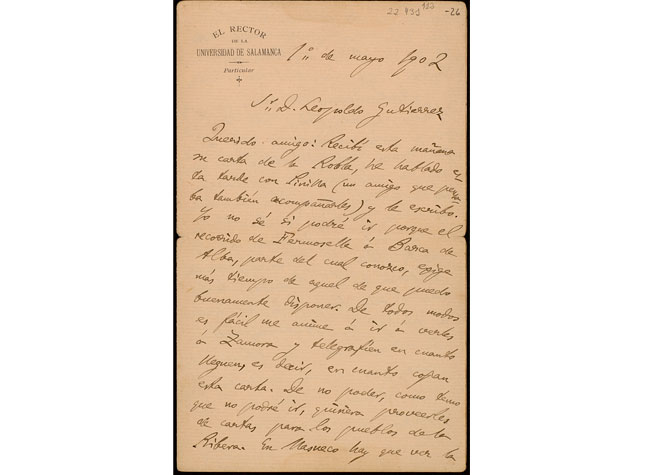 -26
EL RECTOR
DE LA
UNIVERSIDAD DE SALAMANCA
Particular
1º de mayo 1902
Sr. D. Leopoldo Gutierrez
Querido amigo: Recibí esta mañana
su carta de la Robla, he hablado es-
ta tarde con Pinilla (un amigo que pensa-
ba también acompañarles) y le escribo.
Yo no sé si podré ir porque el
recorrido de Fermoselle á Barca de
Alba, parte del cual conozco, exige
más tiempo de aquel de que puedo
buenamente disponer. De todos modos
es fácil me anime á ir á verles
á Zamora y telegrafíen en cuanto
lleguen, es decir, en cuanto cojan
esta carta. De no poder, como temo
que no podré ir, quisiera proveerles
de cartas para los pueblos de la
Ribera. En Masueco hay que ver la